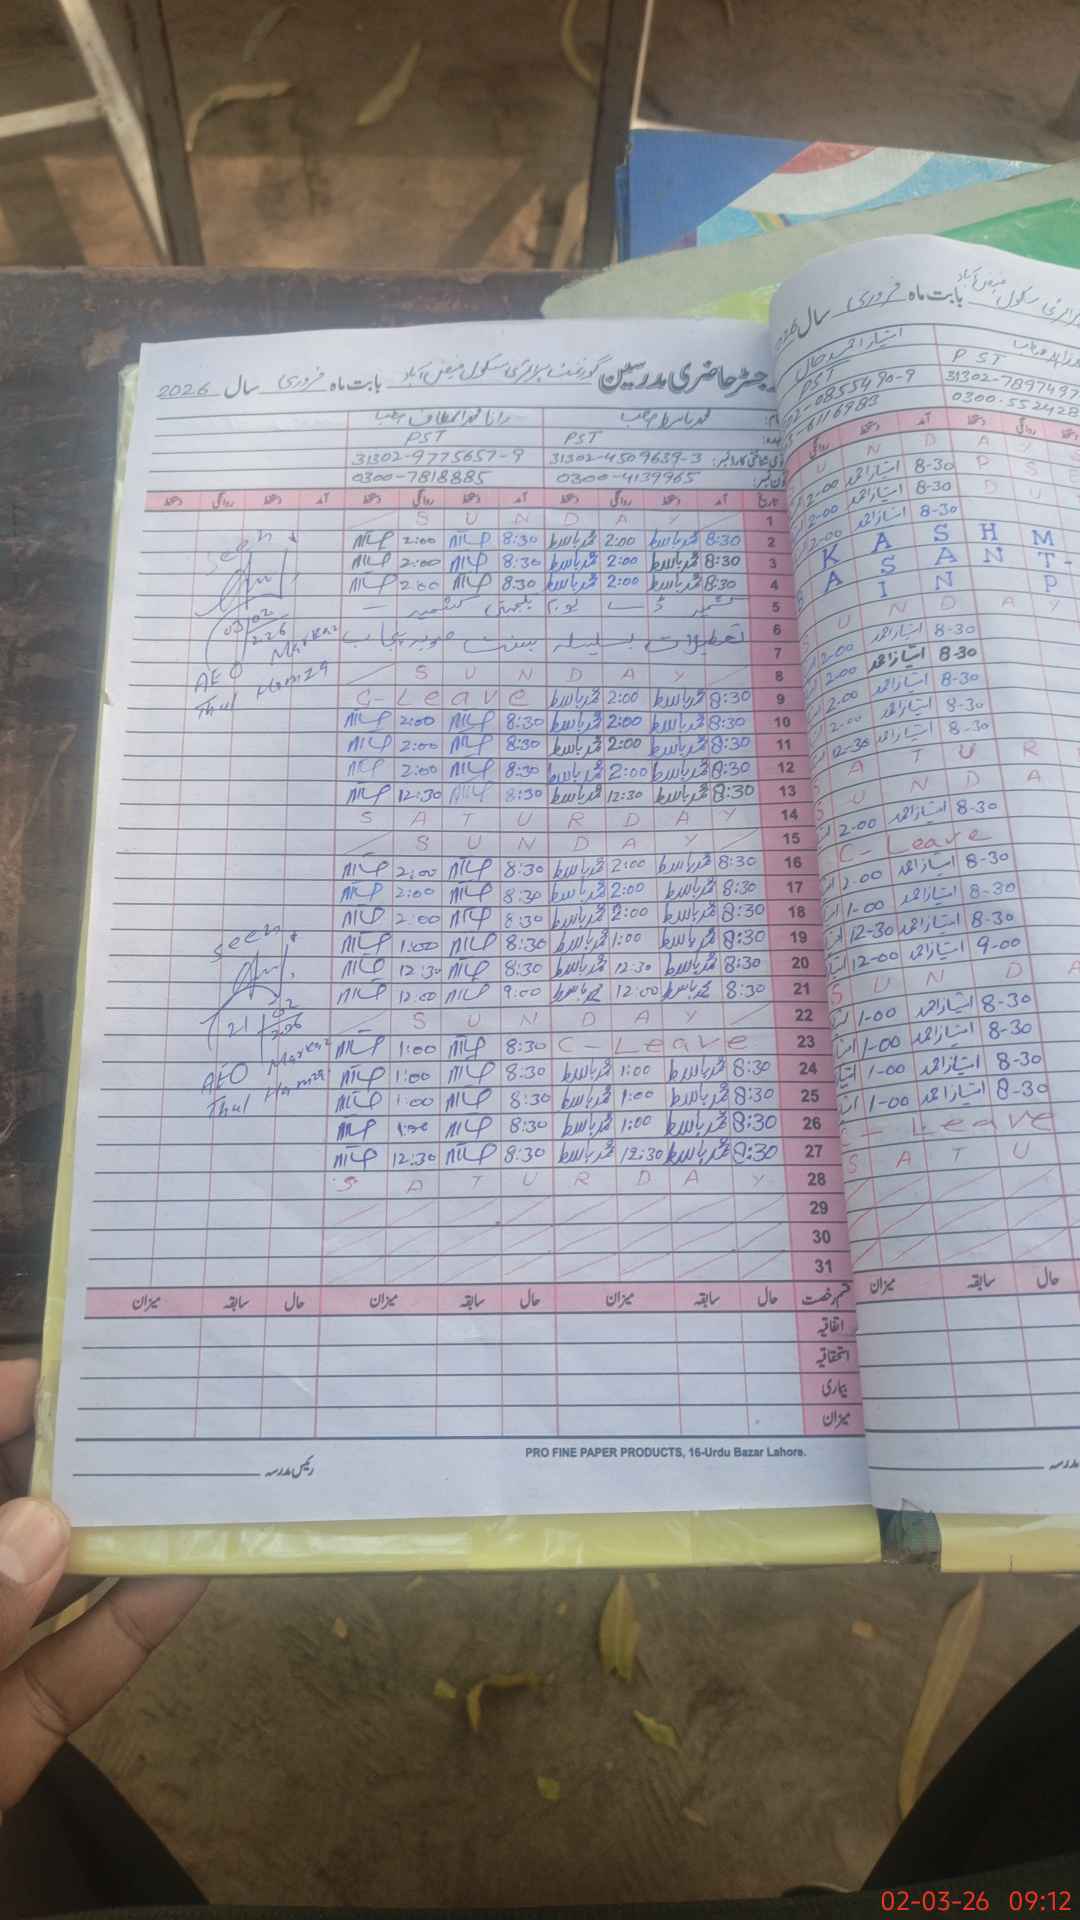 رجسٹر حاضری مدرسین گورنمنٹ پرائمری سکول فیض آباد بابت ماہ فروری سال 2026
محمد باسط صاحب رانا محمد الطاف صاحب
PST PST
31302-4509639-3 31302-9775657-9
0300-4139965 0300-7818885
تاریخ آمد دستخط روانگی دستخط آمد دستخط روانگی دستخط آمد دستخط روانگی دستخط
1 SUNDAY
2 8:30 محمد باسط 2:00 محمد باسط 8:30 2:00
3 8:30 محمد باسط 2:00 محمد باسط 8:30 2:00
4 8:30 محمد باسط 2:00 محمد باسط 8:30 2:00
5 کشمیر ڈے یوم یکجہتی کشمیر
6 تعطیلات بسلسلہ بسنت صوبہ پنجاب
7
8 SUNDAY
9 8:30 محمد باسط 2:00 محمد باسط C-Leave
10 8:30 محمد باسط 2:00 محمد باسط 8:30 2:00
11 8:30 محمد باسط 2:00 محمد باسط 8:30 2:00
12 8:30 محمد باسط 2:00 محمد باسط 8:30 2:00
13 8:30 محمد باسط 12:30 محمد باسط 8:30 12:30
14 SATURDAY
15 SUNDAY
16 8:30 محمد باسط 2:00 محمد باسط 8:30 2:00
17 8:30 محمد باسط 2:00 محمد باسط 8:30 2:00
18 8:30 محمد باسط 2:00 محمد باسط 8:30 2:00
19 8:30 محمد باسط 1:00 محمد باسط 8:30 1:00
20 8:30 محمد باسط 12:30 محمد باسط 8:30 12:30
21 8:30 محمد باسط 12:00 محمد باسط 9:00 12:00
22 SUNDAY
23 C-Leave 8:30 1:00
24 8:30 محمد باسط 1:00 محمد باسط 8:30 1:00
25 8:30 محمد باسط 1:00 محمد باسط 8:30 1:00
26 8:30 محمد باسط 1:00 محمد باسط 8:30 1:00
27 8:30 محمد باسط 12:30 محمد باسط 8:30 12:30
28 SATURDAY
29
30
31
قسم رخصت حال سابقہ میزان حال سابقہ میزان حال سابقہ میزان
اتفاقیہ
استحقاقیہ
بیماری
میزان
PRO FINE PAPER PRODUCTS, 16-Urdu Bazar Lahore.
رئیس مدرسہ
Seen
03/02/226
AEO Markaz
Thul Hamza
Seen
21/02/226
AEO Markaz
Thul Hamza
بابت ماہ فروری سال 2026
PST PST
31302-7897497
0300-552428
SUNDAY
8-30 امتیاز احمد 2-00
8-30 امتیاز احمد 2-00
8-30 امتیاز احمد 2-00
KASHM
BASANT-
AIN P
SUNDAY
8-30 امتیاز احمد 2-00
8-30 امتیاز احمد 2-00
8-30 امتیاز احمد 2-00
8-30 امتیاز احمد 2-00
8-30 امتیاز احمد 12-30
SATUR
SUNDA
8-30 امتیاز احمد 2-00
C-Leave
8-30 امتیاز احمد 2-00
8-30 امتیاز احمد 1-00
8-30 امتیاز احمد 12-30
9-00 امتیاز احمد 12-00
SUNDA
8-30 امتیاز احمد 1-00
8-30 امتیاز احمد 1-00
8-30 امتیاز احمد 1-00
8-30 امتیاز احمد 1-00
C-Leave
SATU
حال سابقہ میزان
مدرسہ
02-03-26 09:12